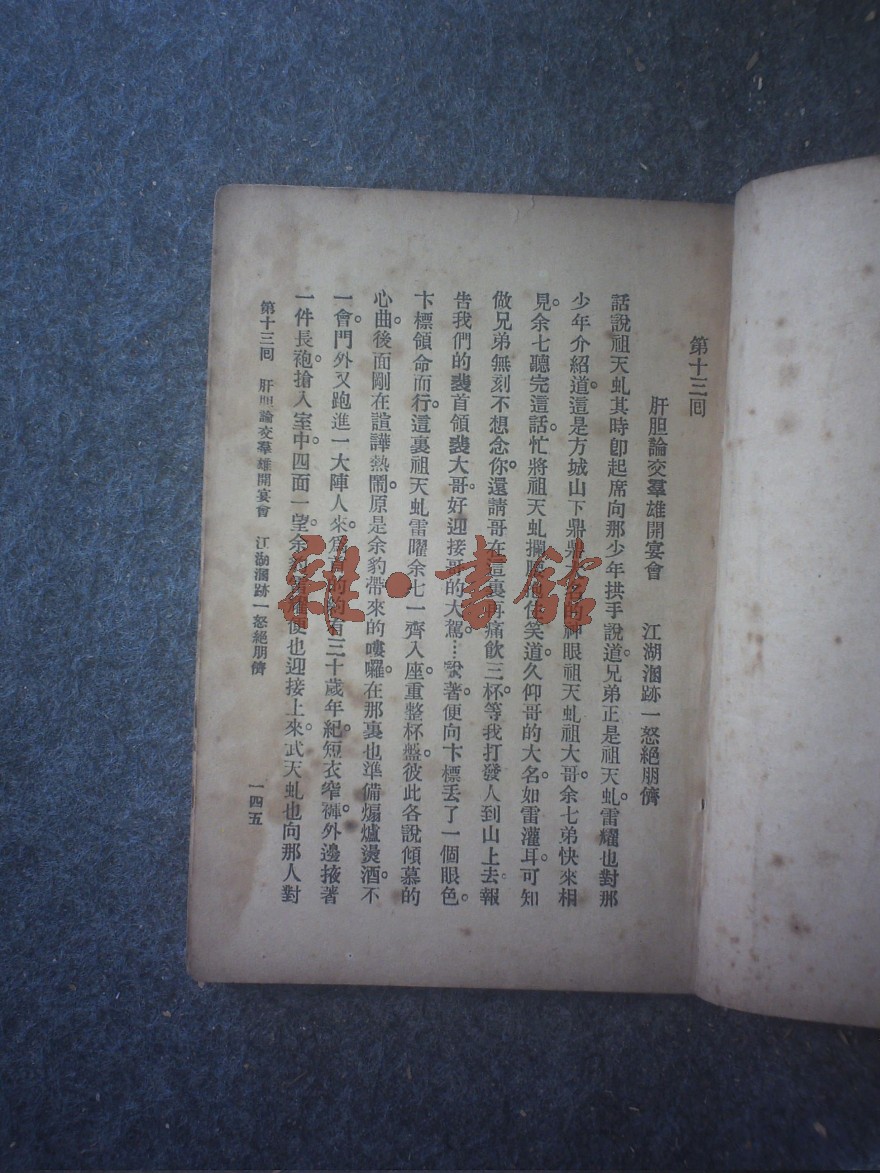 第十三回
肝胆論交羣雄開宴會　江湖溷跡一怒絕朋儕
話說祖天虬其時卽起席向那少年拱手說道兄弟正是祖天虬。雷耀也對那
少年介紹道。這是方城山下鼎鼎大名的神眼祖天虬祖大哥余七弟快來相
見。余七聽完這話。忙將祖天虬攔腰抱住笑道久仰哥的大名。如雷灌耳。可知
做兄弟無刻不想念你。還請哥在這裏再痛飲三杯。等我打發人到山上去。報
告我們的裴首領裴大哥。好迎接哥的大駕。…說著。便向卞標丟了一個眼色。
卞標領命而行。這裏祖天虬雷曜余七一齊入座。重整杯盤。彼此各說傾慕的
心曲。後面剛在諠譁熱鬧。原是余豹帶來的嘍囉。在那裏也準備煽爐燙酒。不
一會。門外又跑進一大陣人來。爲首的約有三十歲年紀。短衣窄褲。外邊掖著
一件長袍。搶入室中。四面一望。余雷耀便也迎接上來。武天虬也向那人對
第十三回　肝胆論交羣雄開宴會　江湖溷跡一怒絕朋儕
一四五
雜·書館